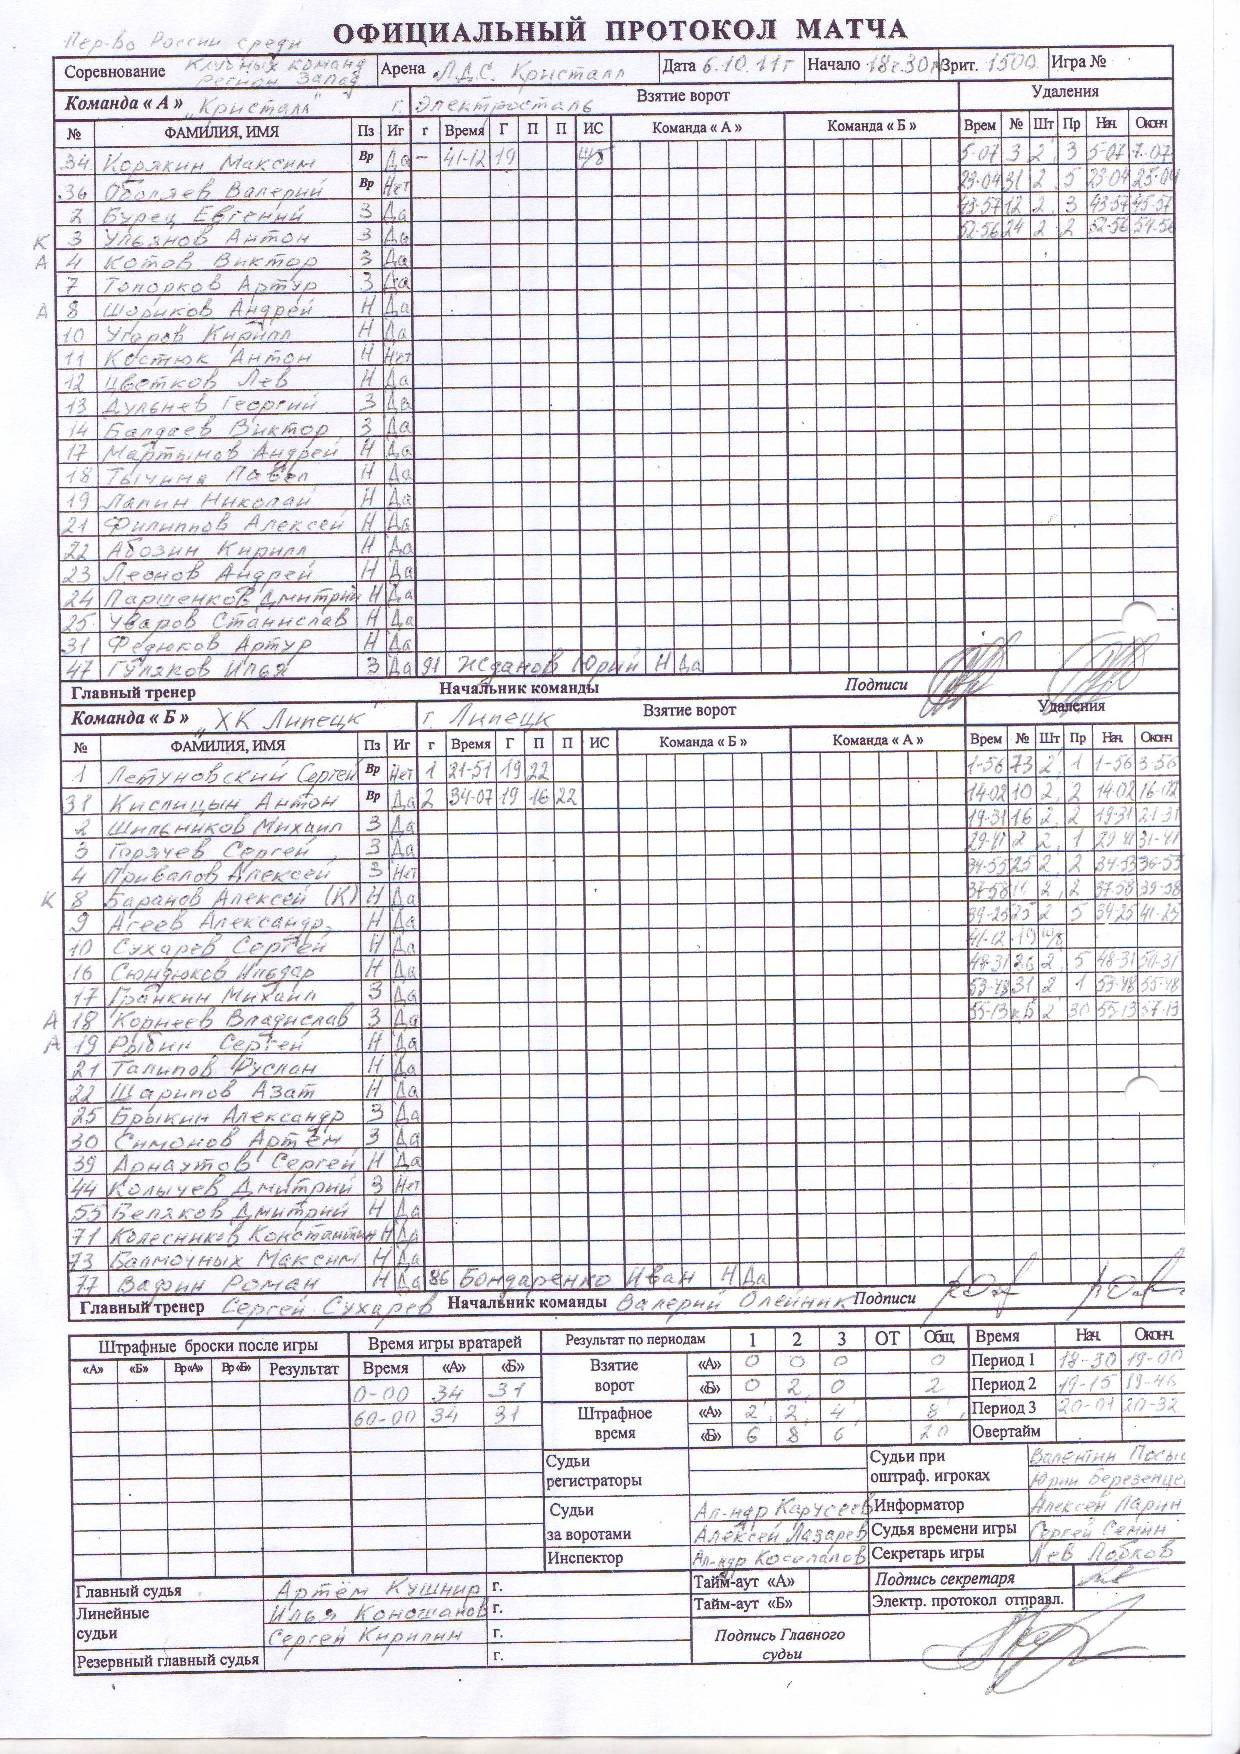 ОФИЦИАЛЬНЫЙ ПРОТОКОЛ МАТЧА
Пер-во России среди
Соревнование клубных команд Регион Запад Арена Л.Д.С. Кристалл Дата 6.10.11г Начало 18ч.30м Зрит. 1500 Игра №
Команда « А » „Кристалл" г. Электросталь Взятие ворот Удаления
№ ФАМИЛИЯ, ИМЯ Пз Иг г Время Г П П ИС Команда « А » Команда « Б » Врем № Шт Пр Нач. Оконч
34 Корякин Максим Вр Да – 41-12 19 Ш/Б 5-07 3 2 3 5-07 7-07
36 Оболяев Валерий Вр Нет 23-04 31 2 5 23-04 25-04
2 Бурец Евгений З Да 43-57 12 2 3 43-57 45-57
К 3 Ульянов Антон З Да 52-56 24 2 2 52-56 54-56
А 4 Котов Виктор З Да
7 Топорков Артур З Да
А 8 Шориков Андрей Н Да
10 Угаров Кирилл Н Да
11 Костюк Антон Н Нет
12 Цветков Лев Н Да
13 Дульнев Георгий З Да
14 Балдаев Виктор З Да
17 Мартынов Андрей Н Да
18 Тычина Павел Н Да
19 Лапин Николай Н Да
21 Филиппов Алексей Н Да
22 Абозин Кирилл Н Да
23 Леонов Андрей Н Да
24 Паршенков Дмитрий Н Да
25 Уваров Станислав Н Да
31 Федюков Артур Н Да
47 Гуляков Илья З Да 91 Жданов Юрий Н Да
Главный тренер Начальник команды Подписи
Команда « Б » „ХК Липецк" г. Липецк Взятие ворот Удаления
№ ФАМИЛИЯ, ИМЯ Пз Иг г Время Г П П ИС Команда « Б » Команда « А » Врем № Шт Пр Нач. Оконч
1 Летуновский Сергей Вр Нет 1 21-51 19 22 1-56 73 2 1 1-56 3-56
31 Кислицын Антон Вр Да 2 34-07 19 16 22 14-02 10 2 2 14-02 16-02
2 Шильников Михаил З Да 19-31 16 2 2 19-31 21-31
3 Горячев Сергей З Да 29-41 2 2 1 29-41 31-41
4 Привалов Алексей З Нет 34-53 25 2 2 34-53 36-53
К 8 Баранов Алексей (К) Н Да 37-58 2 2 37-58 39-58
9 Агеев Александр Н Да 39-25 25 2 5 39-25 41-25
10 Сухарев Сергей Н Да 41-12 19 Ш/Б
16 Сюндюков Ильдар Н Да 48-31 26 2 5 48-31 50-31
17 Гранкин Михаил З Да 53-48 31 2 1 53-48 55-48
А 18 Корнеев Владислав З Да 55-13 к.Б 2 30 55-13 57-13
А 19 Рыбин Сергей Н Да
21 Талипов Руслан Н Да
22 Шарипов Азат Н Да
25 Брыкин Александр З Да
30 Симонов Артём З Да
39 Арнаутов Сергей Н Да
44 Колычев Дмитрий З Нет
55 Беляков Дмитрий Н Да
71 Колесников Константин Н Да
73 Балмочных Максим Н Да
77 Вафин Роман Н Да 86 Бондаренко Иван Н Да
Главный тренер Сергей Сухарев Начальник команды Валерий Олейник Подписи
Штрафные броски после игры Время игры вратарей Результат по периодам 1 2 3 ОТ Общ. Время Нач. Оконч.
«А» «Б» Вр«А» Вр«Б» Результат Время «А» «Б» Взятие ворот «А» 0 0 0 0 Период 1 18-30 19-00
0-00 34 31 «Б» 0 2 0 2 Период 2 19-15 19-46
60-00 34 31 Штрафное время «А» 2 2 4 8 Период 3 20-01 20-32
«Б» 6 8 6 20 Овертайм
Судьи регистраторы Судьи при оштраф. игроках Валентин
Юрий
Судьи за воротами Ал-ндр Карусеев Информатор Алексей Ларин
Алексей Лазарев Судья времени игры Сергей Семин
Инспектор Ал-ндр Косолапов Секретарь игры Лев Лобков
Главный судья Артём Кушнир г. Тайм-аут «А» Подпись секретаря
Линейные судьи Илья Коношанов г. Тайм-аут «Б» Электр. протокол отправл.
Сергей Кирилин г. Подпись Главного судьи
Резервный главный судья г.